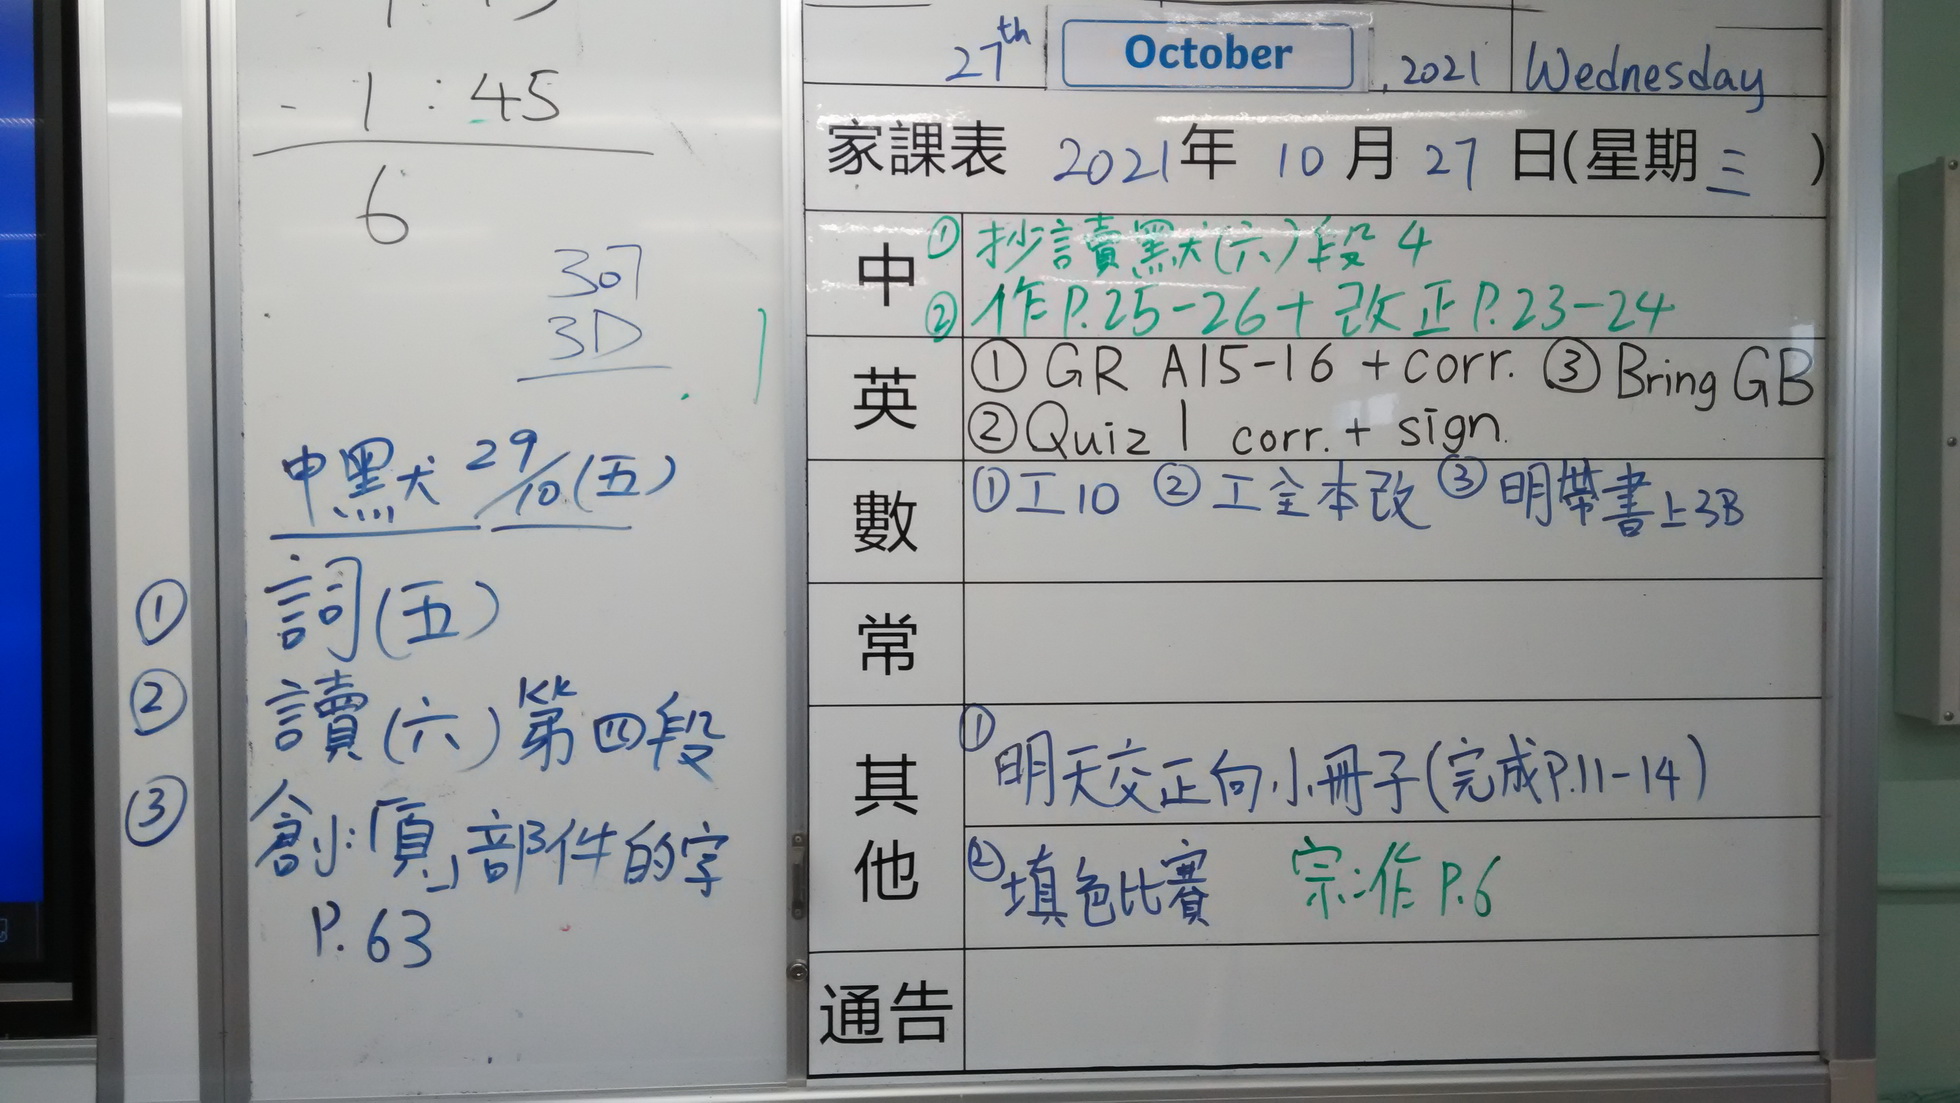 - 1 : 45
6
307
3D
中默 29/10 (五)
① 詞(五)
② 讀(六)第四段
③ 創:「頁」部件的字
P. 63
27th October , 2021 Wednesday
家課表 2021年 10 月 27 日(星期三 )
中 ① 抄讀默(六)段 4
② 作P.25-26+改正P.23-24
英 ① GR A15-16 + corr. ③ Bring GB
② Quiz 1 corr. + sign.
數 ①工10 ②工全本改 ③明帶書上3B
常
其他 ① 明天交正向小冊子(完成P.11-14)
② 填色比賽 宗:作 P.6
通告